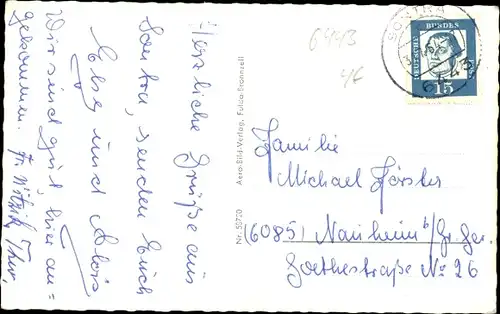 Herzliche Grüße aus
Sontra, senden Euch
Else und Alois
Wir sind gut hier an=
gekommen.
Aero-Bild-Verlag, Fulda-Bronnzell
Nr. 59720
6443
SONTRA
6443
DEUTSCHE BUNDESPOST
15
Familie
Michael Förster
(6085) Nauheim b/Gr. Ger.
Goethestraße No 26